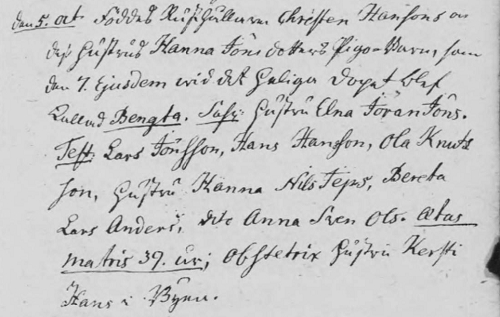 den 5. oct Föddes Rusthållaren Christen Hansons och
dess hustrus Hanna Jöns dotters Pigo-Barn, som
den 7. Ejusdem wid det heliga dopet blef
kallad Bengta. Susc: hustru Elna Jöran Jöns.
Test: Lars Jönsson, Hans Hansson, Ola Knuts
son, hustru Hanna Nils Jeps, Bereta
Lars Anders, dito Anna Sven Ols. Ætas
matris 39. år; Obstetrix hustru Kersti
Hans i Byen.